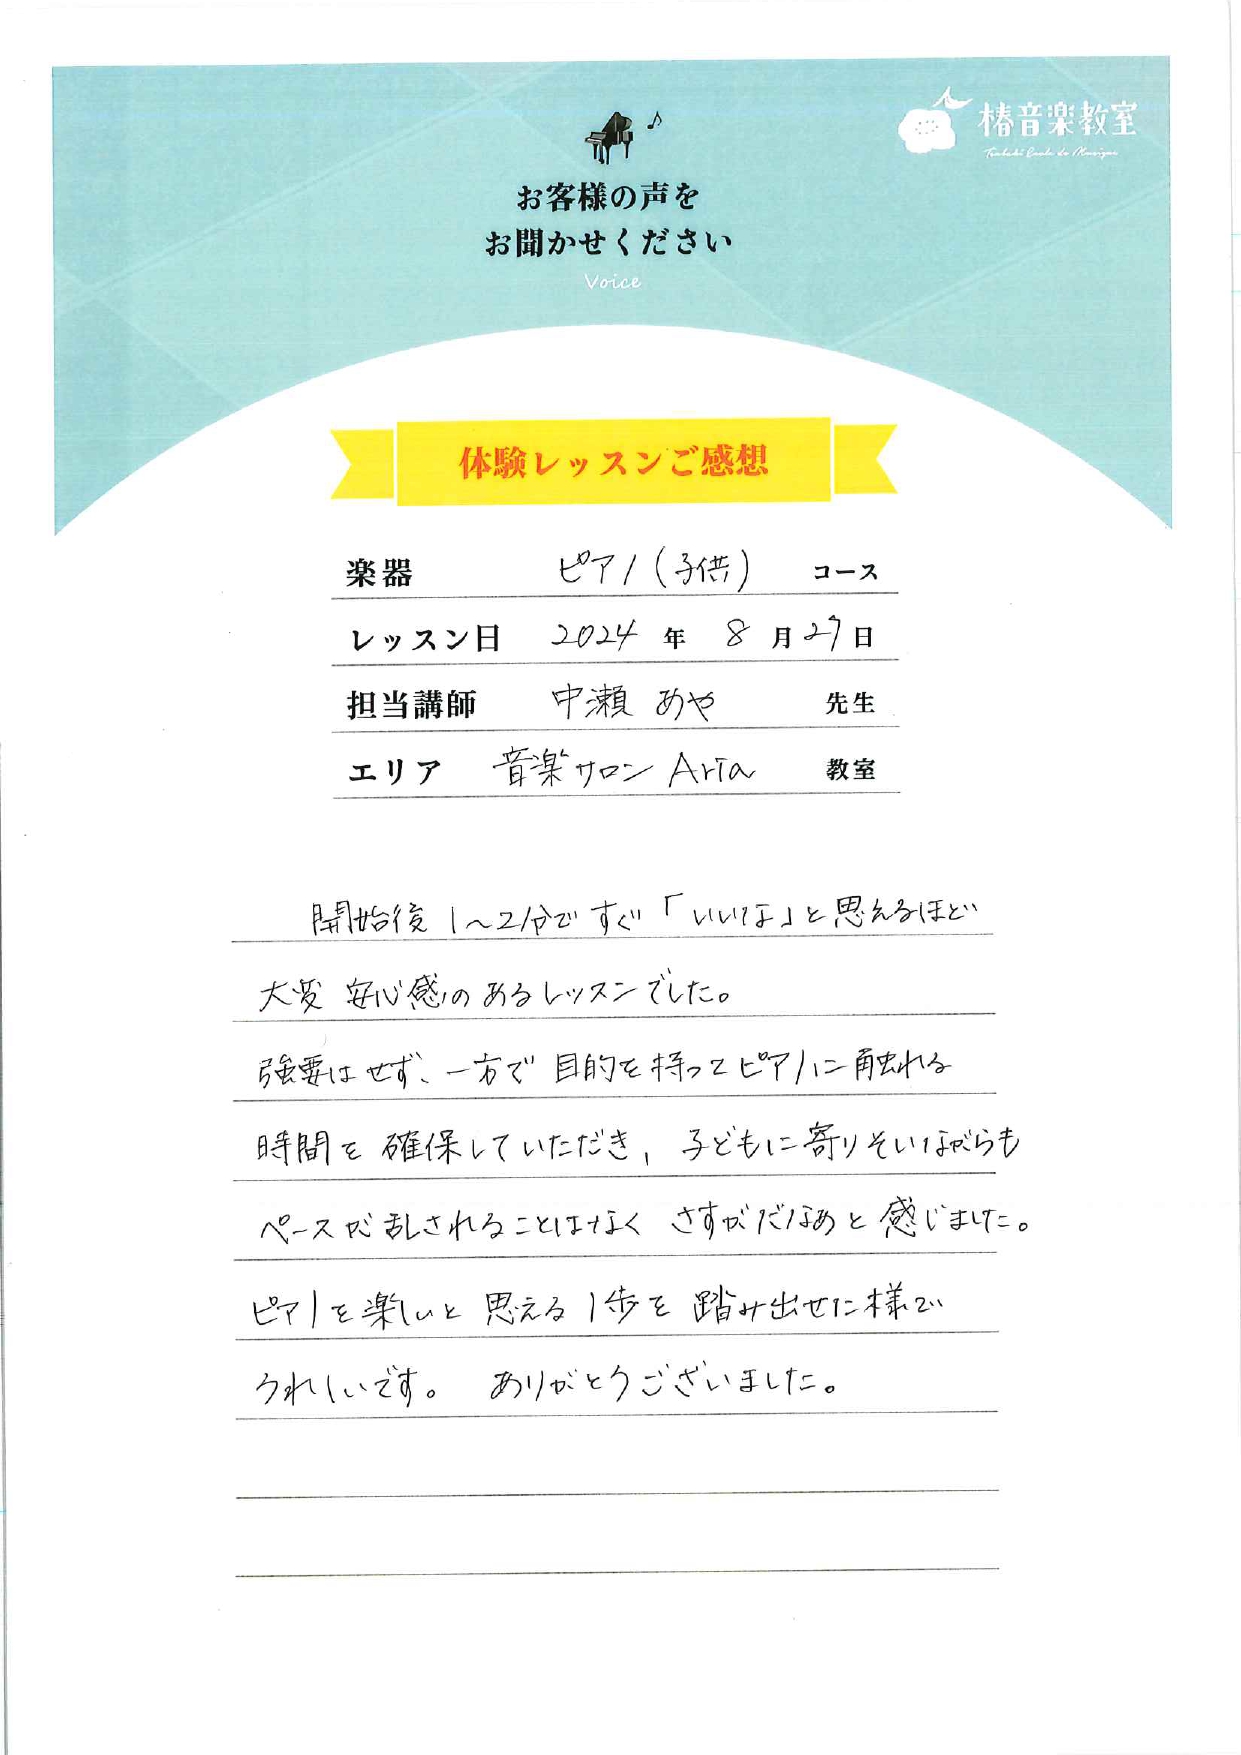 椿音楽教室
Tsubaki Ecole de Musique
お客様の声を
お聞かせください
Voice
体験レッスンご感想
楽器 ピアノ(子供) コース
レッスン日 2024 年 8 月 27 日
担当講師 中瀬 あや 先生
エリア 音楽サロン Aria 教室
開始後 1~2分で すぐ「いいな」と思えるほど
大変 安心感の あるレッスンでした。
強要はせず、一方で 目的を持ってピアノに触れる
時間を 確保していただき, 子どもに寄りそいながらも
ペースが乱されることはなく さすがだなあと感じました。
ピアノを楽しいと 思える 1歩を 踏み出せた様で
うれしいです。 ありがとうございました。